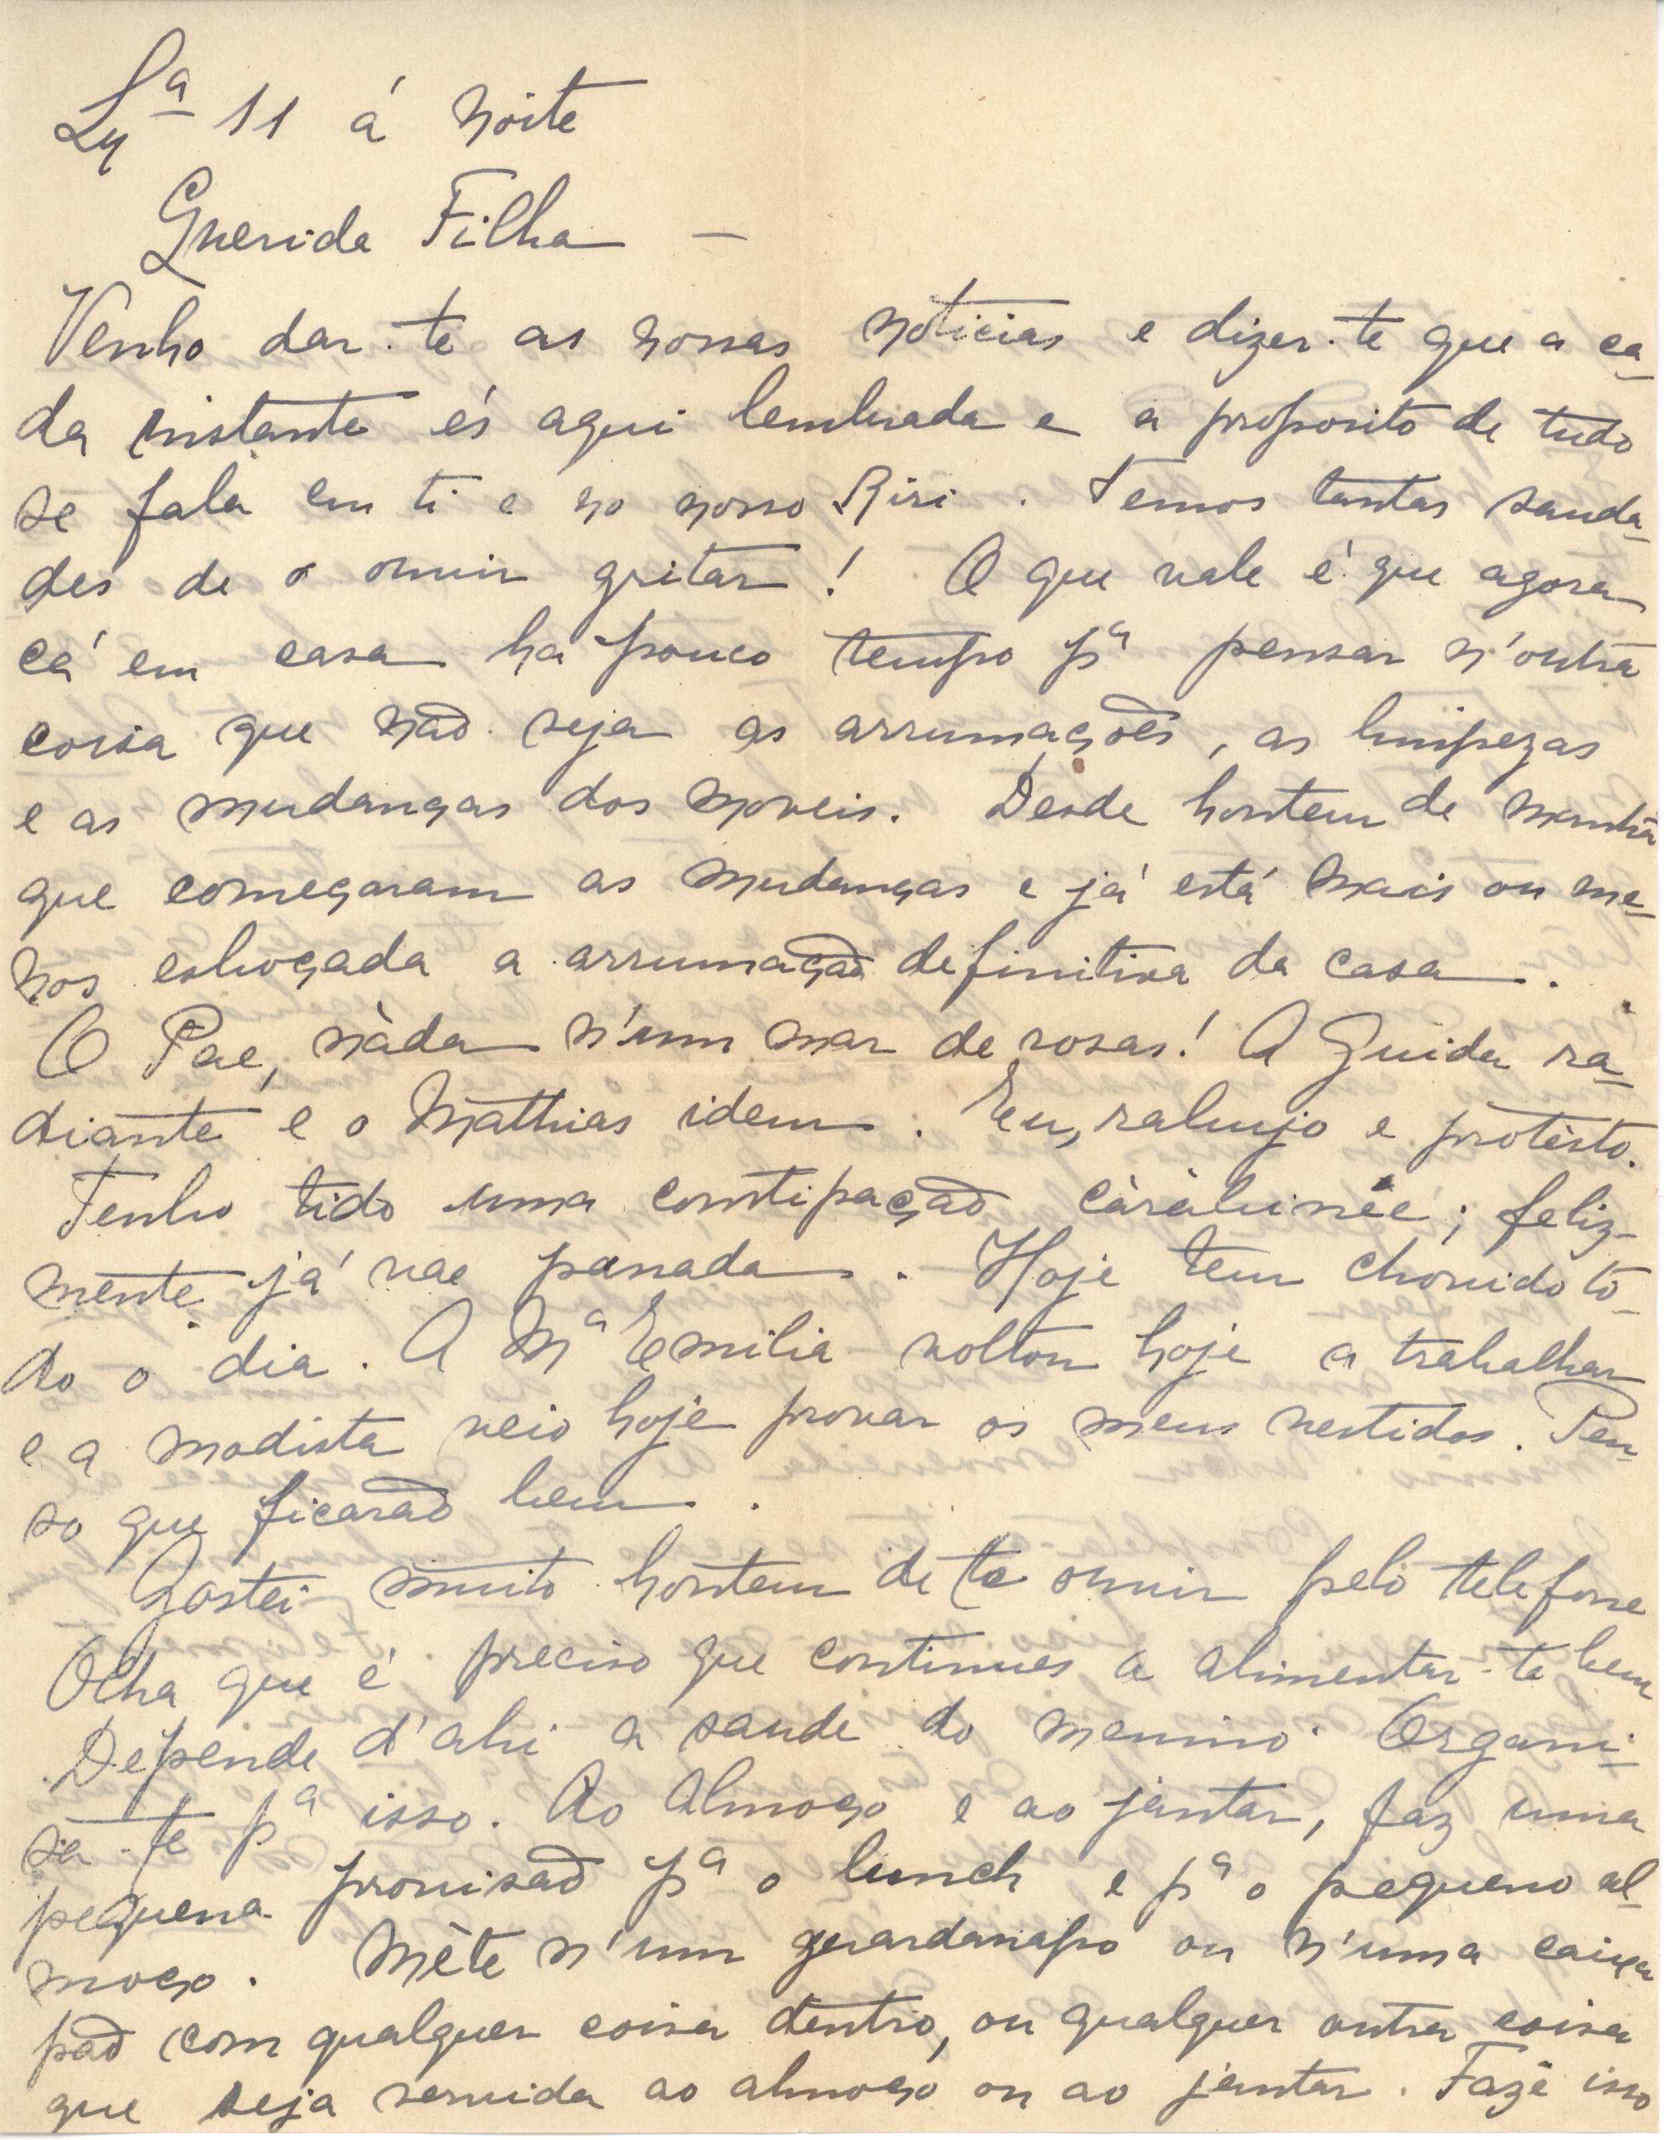 Lxª 11 á noite
Querida Filha —
Venho dar-te as nossas noticias e dizer-te que a ca-
da instante és aqui lembrada e a proposito de tudo
se fala em ti e no nosso Riri. Temos tantas sauda-
des de o ouvir gritar! O que vale é que agora
cá em casa ha pouco tempo pª pensar n'outra
coisa que não seja as arrumações, as limpezas
e as mudanças dos moveis. Desde hontem de manhã
que começaram as mudanças e já está mais ou me-
nos esboçada a arrumação definitiva da casa.
O Pae, nàda n'um mar de rosas! A Guida ra-
diante e o Mathias idem. Eu, rabujo e protésto.
Tenho tido uma constipação càràbinée; feliz-
mente já vae passada. Hoje tem chovido to-
do o dia. A Mª Emilia voltou hoje a trabalhar
e a modista veio hoje provar os meus vestidos. Pen-
so que ficarão bem.
Gostei muito hontem de te ouvir pelo telefone
Olha que é preciso que continues a alimentar-te bem
Depende d'ahi a saude do menino. Organi-
sa-te pª isso. Ao almoço e ao jantar, faz uma
pequena provisão pª o lunch e pª o pequeno al-
moço. Mète n'um guardanapo ou n'uma caixa
pão com qualquer coisa dentro, ou qualquer outra coisa
que seja servida ao almoço ou ao jantar. Fazê isso